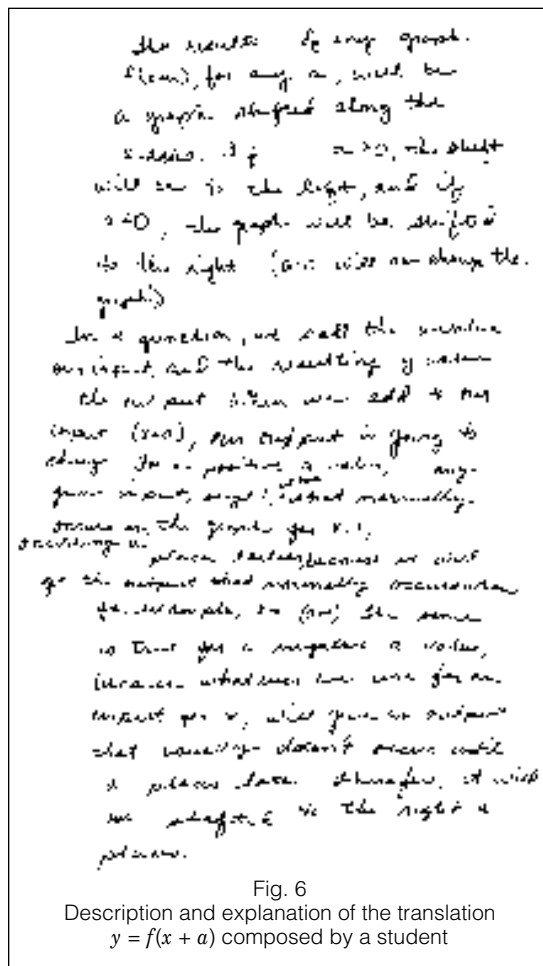 the results of any graph.
f(x+a), for any a, will be
a graph shifted along the
x-axis. If a>0, the shift
will be to the left, and if
a<0, the graph will be shifted
to the right (a=0 will not change the
graph.)
In a function, we call the
our input, and the resulting y value
the output. When we add to the
input (x+a), our output is going to
change. For a positive a value, any
given input, normally
occurs on the graph for x=1,
places because it will
the output that normally occurs when
for example, to (x+a). The same
is true for a negative a value,
because whatever we use for an
input for x, will give an output
that usually doesn't occur until
a places later. Therefore, it will
be shifted to the right a
places.
Fig. 6
Description and explanation of the translation
y = f(x + a) composed by a student